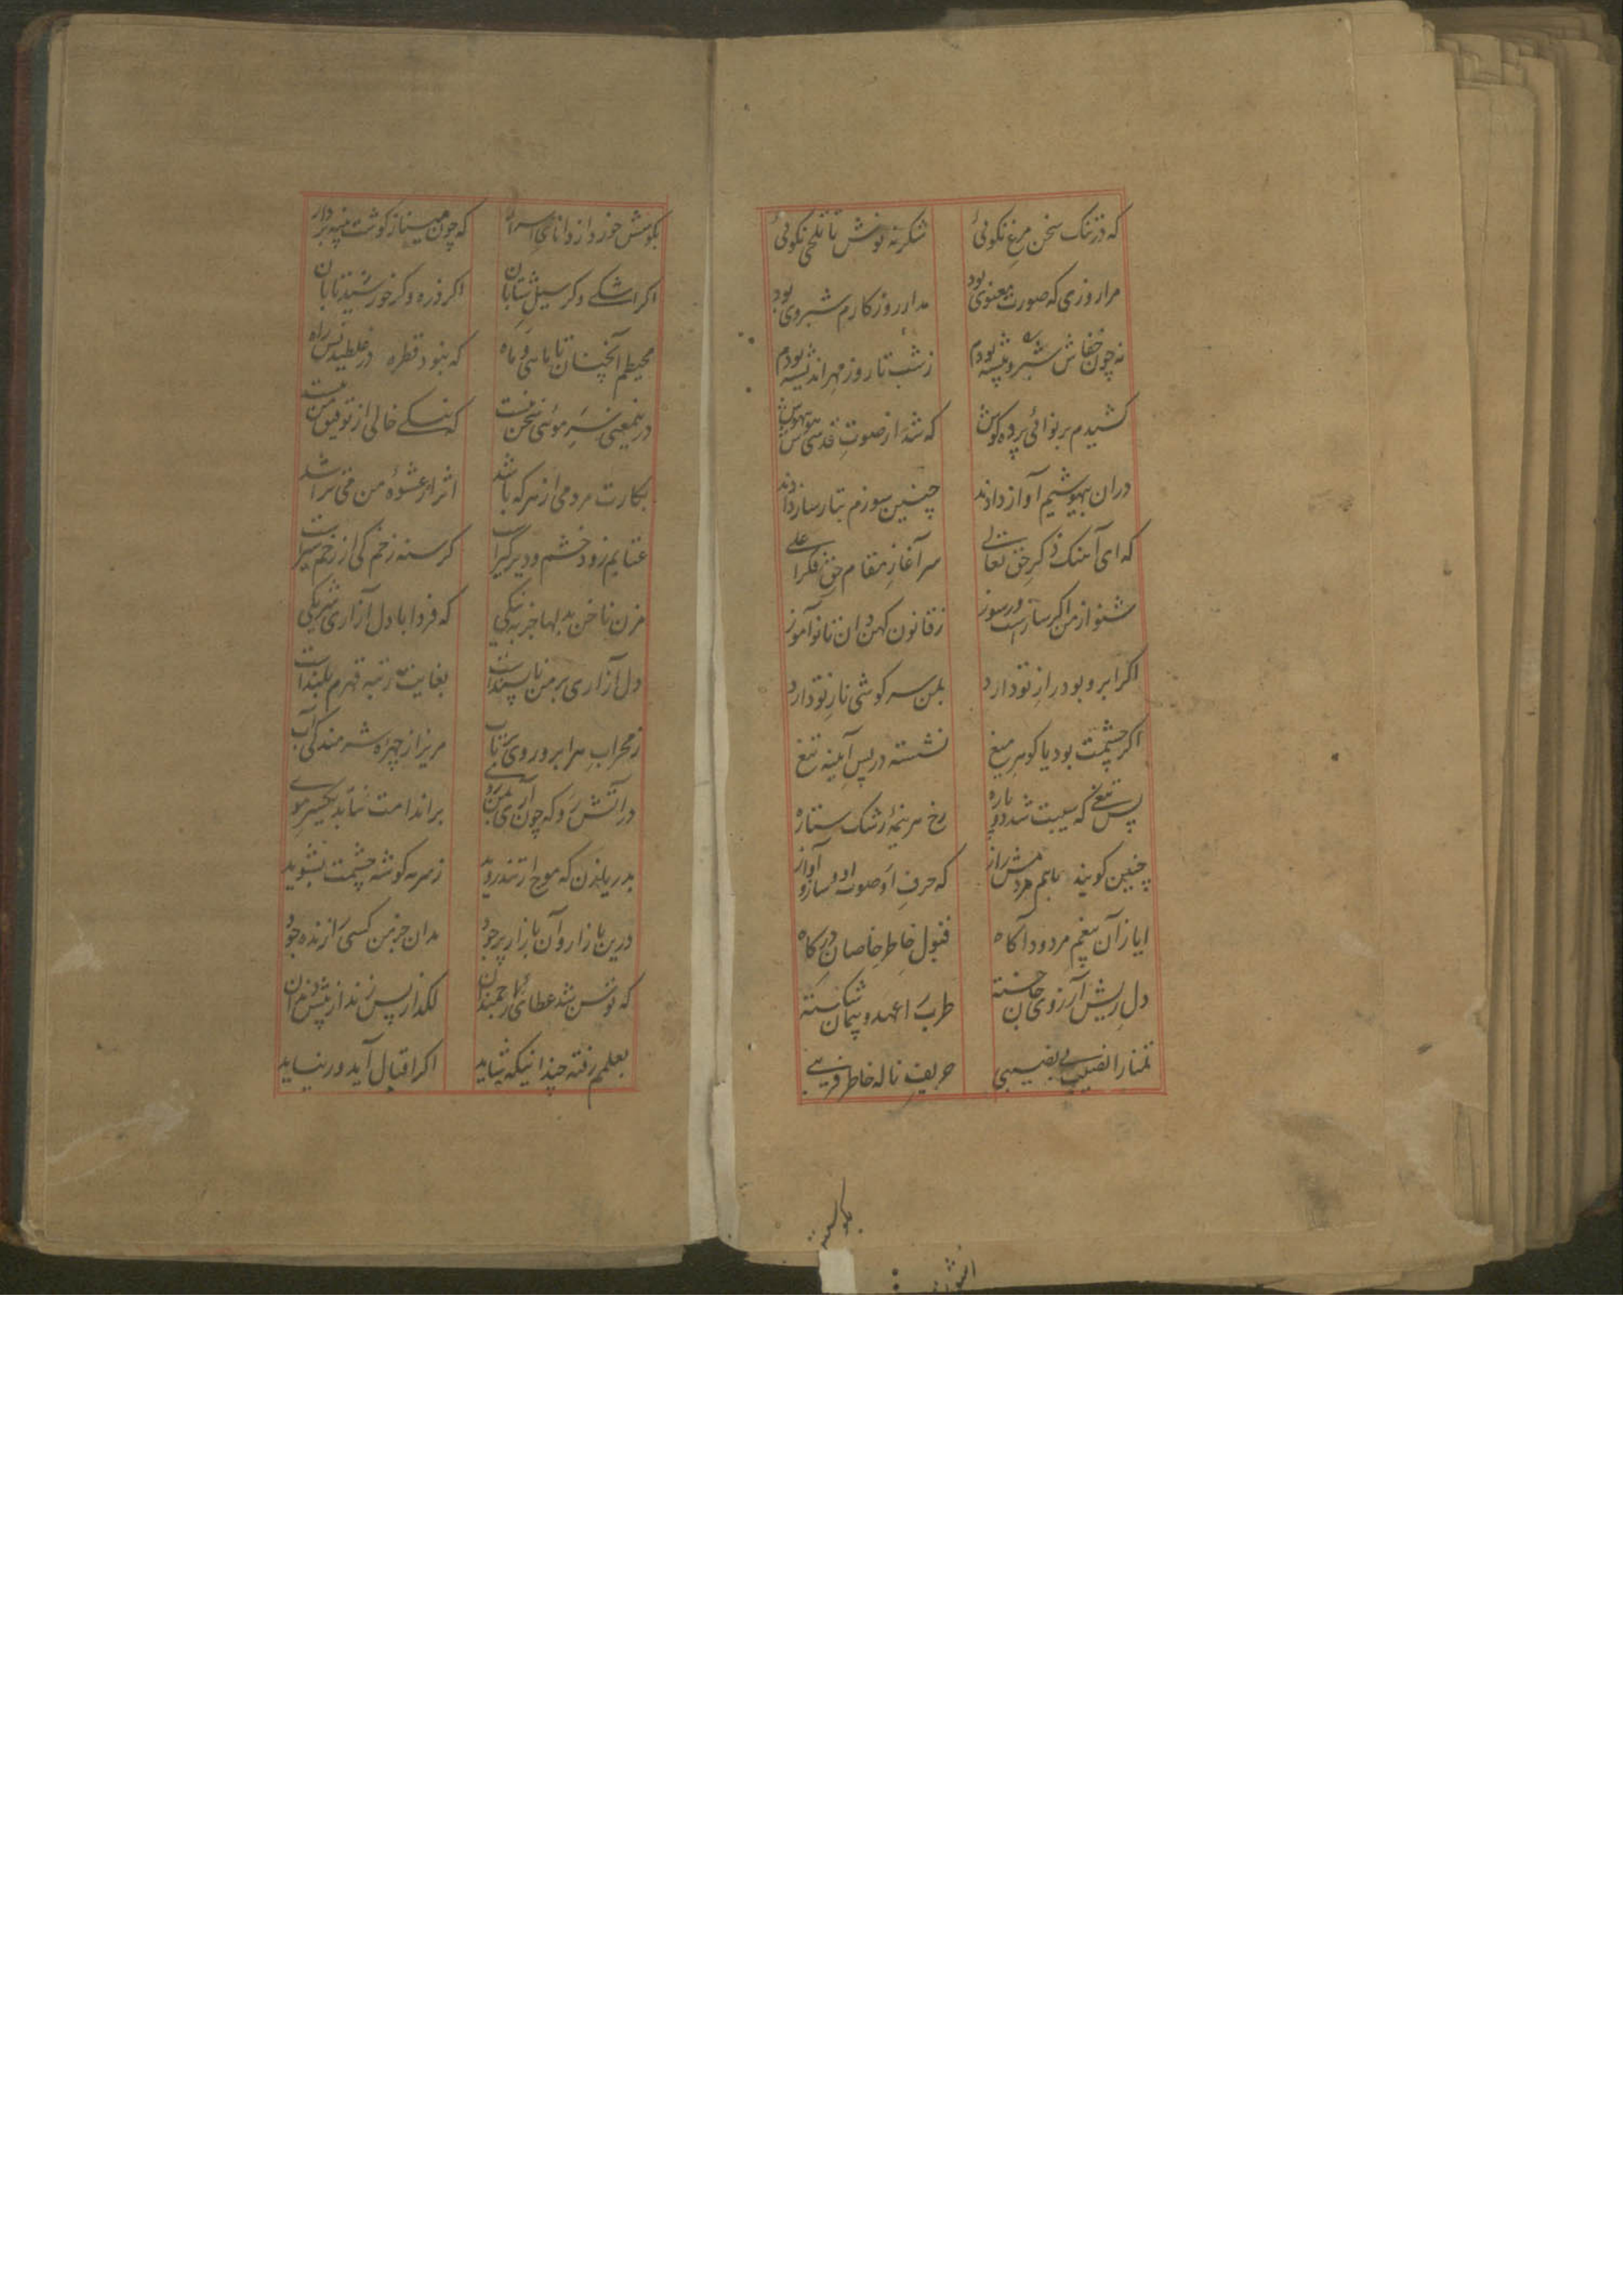 که در تنک سخن مرغ نکوئی شکر ته نوش با تلخی نکوئی
مرا روزی که صورت معنوی بود مدار روزکارم شبروی بود
نه چون خفاش شبرو پیشه بودم ز شب تا روز مهر اندیشه بودم
کشیدم بر نوائی پرده کوش که شد از صوت قدسی هوش بیهوش
در ان بیهوشیم آواز دادند چنین سوزم بتار ساز دادند
که ای آهنک ذکر حق تعالی سر آغاز مقام حق
شنو از من اکر ساز است ور سوز ز قانون کهن دان تا نو آموز
اکر ابرو بود راز تو دارد بمن سر کوشی ناز تو دارد
اکر چشمت بود یا کوهر میغ نشسته در پس آیینه تیغ
پس تیغی که سیبت شد دو پاره رخ هر نیمهٔ رشک ستاره
چنین کویند باهم راز که حرف او صوت او آواز
ایاز آن بیغم مردود آکاه قبول خاطر خاصان درکاه
دل ریش آرزوی جان خسته طرب را عهد و پیمان شکسته
تمنا را نصیب بی نصیبی حریف ناله خاطر فریبی
بکوشش خورد از دانای اسرار که چون مینا ز کوشت پنبه بردار
اکر اشکی وکر سیل شتابان اکر ذره وکر خورشید تابان
محیطم آنچنان تا ماهی و ماه که نبود قطره در غلطیدنش راه
درینمعنی سر موئی سخن نیست که سنکی خالی از توفیق من نیست
بکارت مردمی از هر که باشد اثر از عشوهٔ من می تراشد
عتابم زود خشم و دیر کیراست کرسنه زخمکی از زخم سیراست
مزن ناخن بدلها جز به نیکی که فردا با دل آزاری شریکی
دل آزاری بر من ناپسنداست بغایت رتبه قهرم بلنداست
ز محراب هر ابرو روی برتاب مریز از چهره شرمندکی آب
در آتش رو که چون آری بمن روی بر اندامت نتابد یکسر موی
بدریا زن که موج از تند روید ز سرمه کوشه چشمت بشوید
درین بازار و آن بازار پر جود مدان جز من کسی ارزنده جود
که نوش شد عطای ارجمندان لکد از پس زند از پیش دندان
بعلمم رفته چندانیکه شاید اکر اقبال آید ور نیاید
بکوشش